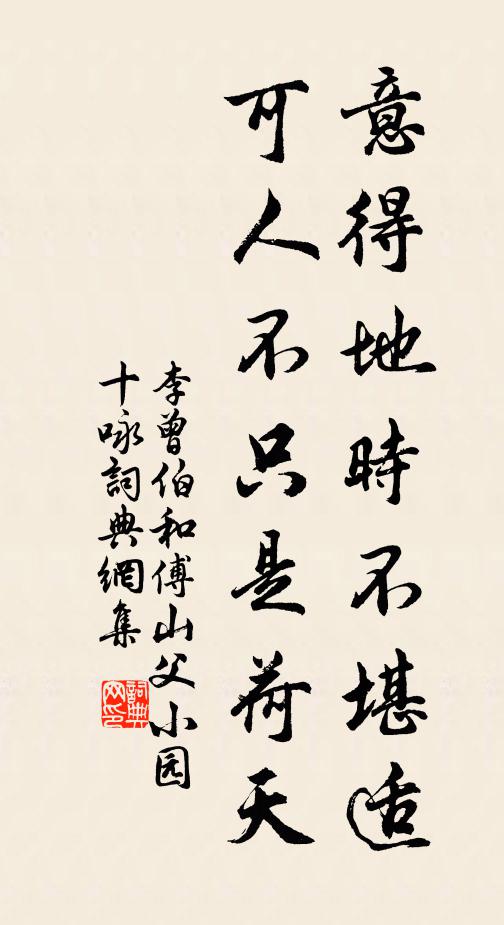 意得地時不堪适
可人不只是荷天
李曾伯和傅山父小园
十咏詞典網集
詞典网印